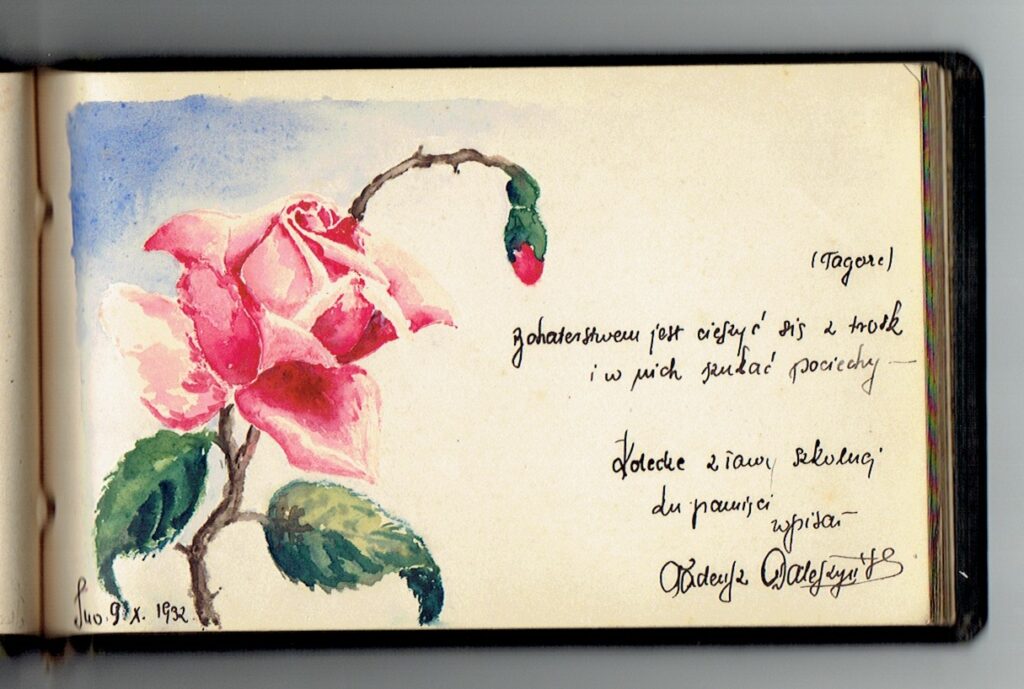 (Tagore)
Bohaterstwem jest cieszyć się z trosk
i w nich szukać pociechy —
z ławy szkolnej
ku pamięci
wpisał
Tadeusz
9 X. 1932.